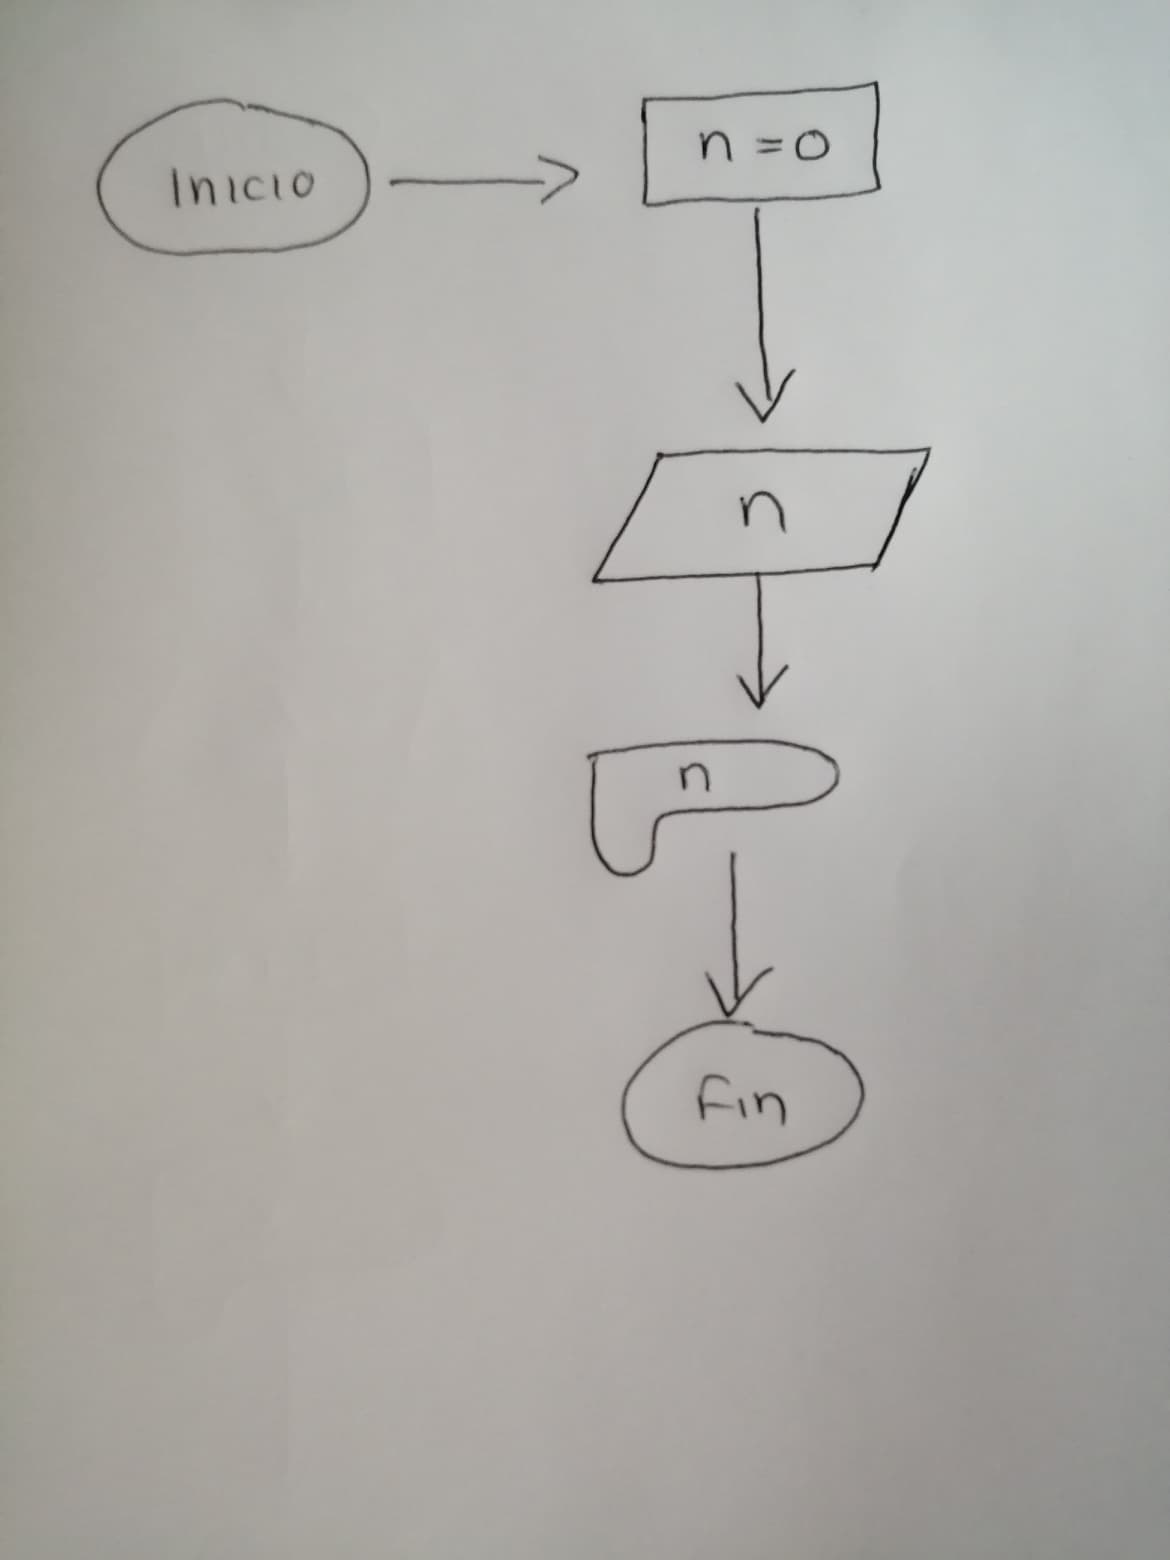 Inicio
n = 0
n
n
Fin